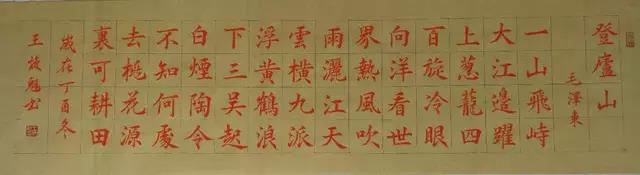 登廬山
毛澤東
一山飛峙
大江邊躍
上蔥龍四
百旋冷眼
向洋看世
界熱風吹
雨灑江天
雲橫九派
浮黃鶴浪
下三吳起
白煙陶令
不知何處
去桃花源
裏可耕田
歲在丁酉冬
王